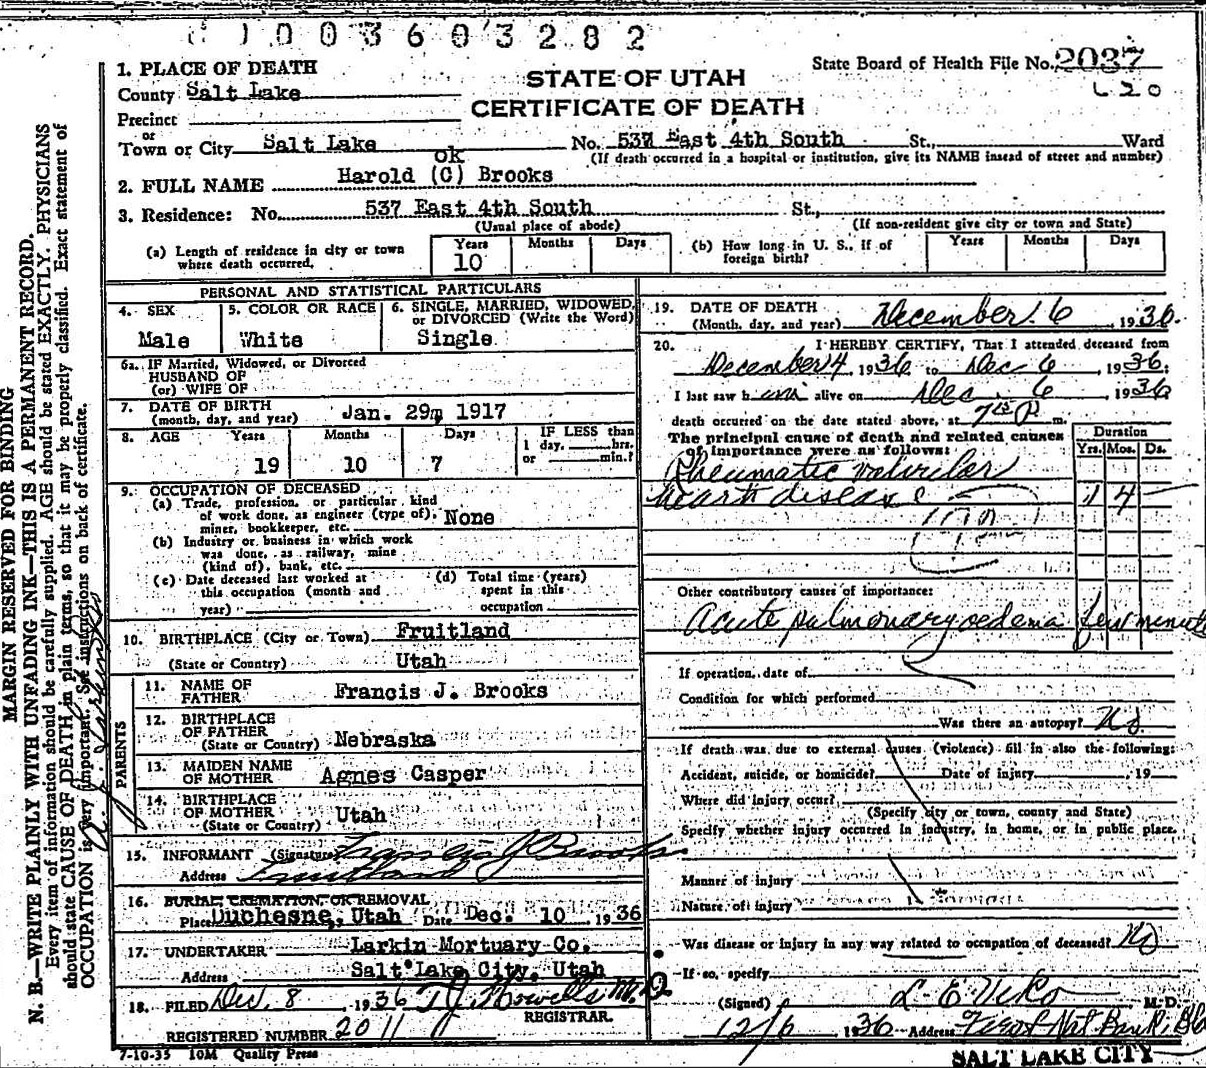 0 0 3 6 0 3 2 8 2
1. PLACE OF DEATH
County Salt Lake
STATE OF UTAH
CERTIFICATE OF DEATH
State Board of Health File No. 2037
620
Precinct
or
Town or City Salt Lake No. 537 East 4th South St., Ward
(If death occurred in a hospital or institution, give its NAME insead of street and number)
ok
2. FULL NAME Harold (C) Brooks
3. Residence: No. 537 East 4th South St.,
(Usual place of abode) (If non-resident give city or town and State)
(a) Length of residence in city or town where death occurred. Years 10 Months Days
(b) How long in U. S., if of foreign birth? Years Months Days
PERSONAL AND STATISTICAL PARTICULARS
4. SEX Male
5. COLOR OR RACE White
6. SINGLE, MARRIED, WIDOWED, or DIVORCED (Write the Word) Single
6a. IF Married, Widowed, or Divorced
HUSBAND OF
(or) WIFE OF
7. DATE OF BIRTH
(month, day, and year) Jan. 29, 1917
8. AGE Years 19 Months 10 Days 7
IF LESS than
1 day, hrs.
or min.?
9. OCCUPATION OF DECEASED
(a) Trade, profession, or particular kind
of work done, as engineer (type of),
miner, bookkeeper, etc. None
(b) Industry or business in which work
was done, as railway, mine
(kind of), bank, etc.
(c) Date deceased last worked at
this occupation (month and
year)
(d) Total time (years)
spent in this
occupation
10. BIRTHPLACE (City or Town) Fruitland
(State or Country) Utah
PARENTS
11. NAME OF
FATHER Francis J. Brooks
12. BIRTHPLACE
OF FATHER
(State or Country) Nebraska
13. MAIDEN NAME
OF MOTHER Agnes Casper
14. BIRTHPLACE
OF MOTHER
(State or Country) Utah
15. INFORMANT (Signature) Francis J Brooks
Address Fruitland
16. BURIAL, CREMATION, OR REMOVAL
Place Duchesne, Utah Date Dec. 10 1936
17. UNDERTAKER Larkin Mortuary Co.
Address Salt Lake City, Utah
18. FILED Dec. 8 1936 T J Howells M. D.
REGISTRAR.
REGISTERED NUMBER 2011
7-10-35 10M Quality Press
19. DATE OF DEATH
(Month, day, and year) December 6, 1936.
20. I HEREBY CERTIFY, That I attended deceased from
December 4, 1936 to Dec 6, 1936;
I last saw him alive on Dec. 6, 1936
death occurred on the date stated above, at 7 15 P m.
The principal cause of death and related causes
of importance were as follows:
Duration
Yrs. Mos. Ds.
Rheumatic valvular
heart disease 1 4 —
Other contributory causes of importance:
Acute pulmonary oedema few minutes
If operation, date of
Condition for which performed
Was there an autopsy? No
If death was due to external causes (violence) fill in also the following:
Accident, suicide, or homicide? Date of injury , 19
Where did injury occur?
(Specify city or town, county and State)
Specify whether injury occurred in industry, in home, or in public place.
Manner of injury
Nature of injury
Was disease or injury in any way related to occupation of deceased? No
If so, specify
(Signed) L. E. Viko M. D.
12/6 1936 Address First Nat Bank Bld
SALT LAKE CITY
MARGIN RESERVED FOR BINDING
N. B.—WRITE PLAINLY WITH UNFADING INK—THIS IS A PERMANENT RECORD.
Every item of information should be carefully supplied. AGE should be stated EXACTLY. PHYSICIANS
should state CAUSE OF DEATH in plain terms, so that it may be properly classified. Exact statement of
OCCUPATION is very important. See instructions on back of certificate.